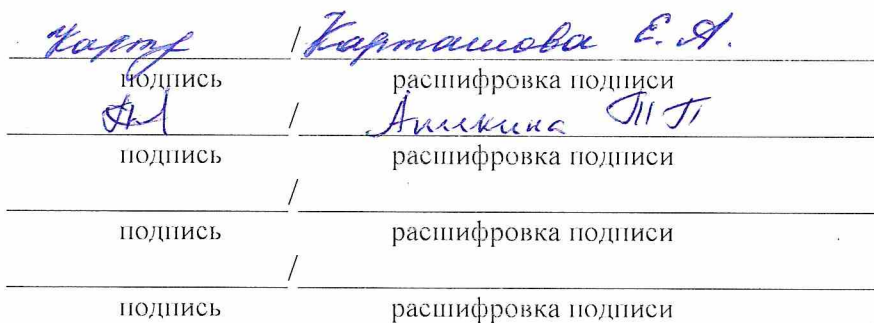 / Карташова Е. А.
подпись расшифровка подписи
/ Аникина Т П
подпись расшифровка подписи
/
подпись расшифровка подписи
/
подпись расшифровка подписи